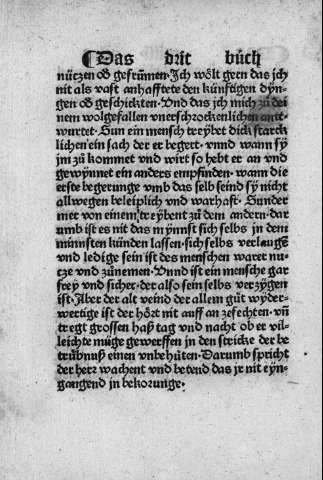 ¶Das drit bůch
nüczen oð gefrůmen·Ich wölt gern das jch
nit als vast anhafftete den künftigen dyn-
gen oð geschickten·Vnd das jch mich zů dei
nem wolgefallen vnerschrockenlichen ant-
wurtet·Sun ein mensch treybet dick starck
lichen ein sach der er begert·vnnd wann sy
jm zů kommet vnd wirt so hebt er an vnd
gewynnet ein anders empfinden·wann die
erste begerunge vmb das selb seind sy nicht
allwegen beleiplich vnd warhaft·Sunder
met von einem treybent zů dem andern·dar
umb ist es nit das mynnst sich selbs in dem
minnsten künden lassen·sich selbs verlaugē
vnd ledige sein ist des menschen warer nu-
cze vnd zůnemen·Vnnd ist ein mensche gar
frey vnd sicher·der also sein selbs verzygen
ist·Aber der alt veind der allem gůt wyder-
wertige ist der hört nit auff an zefechten·vñ
tregt grossen haß tag vnd nacht ob er vil-
leichte müge gewerffen in den stricke der be
trůbnuß einen vnbehůten·Darumb spricht
der herr wachent vnd betend das jr nit eyn-
gangend in bekorunge·